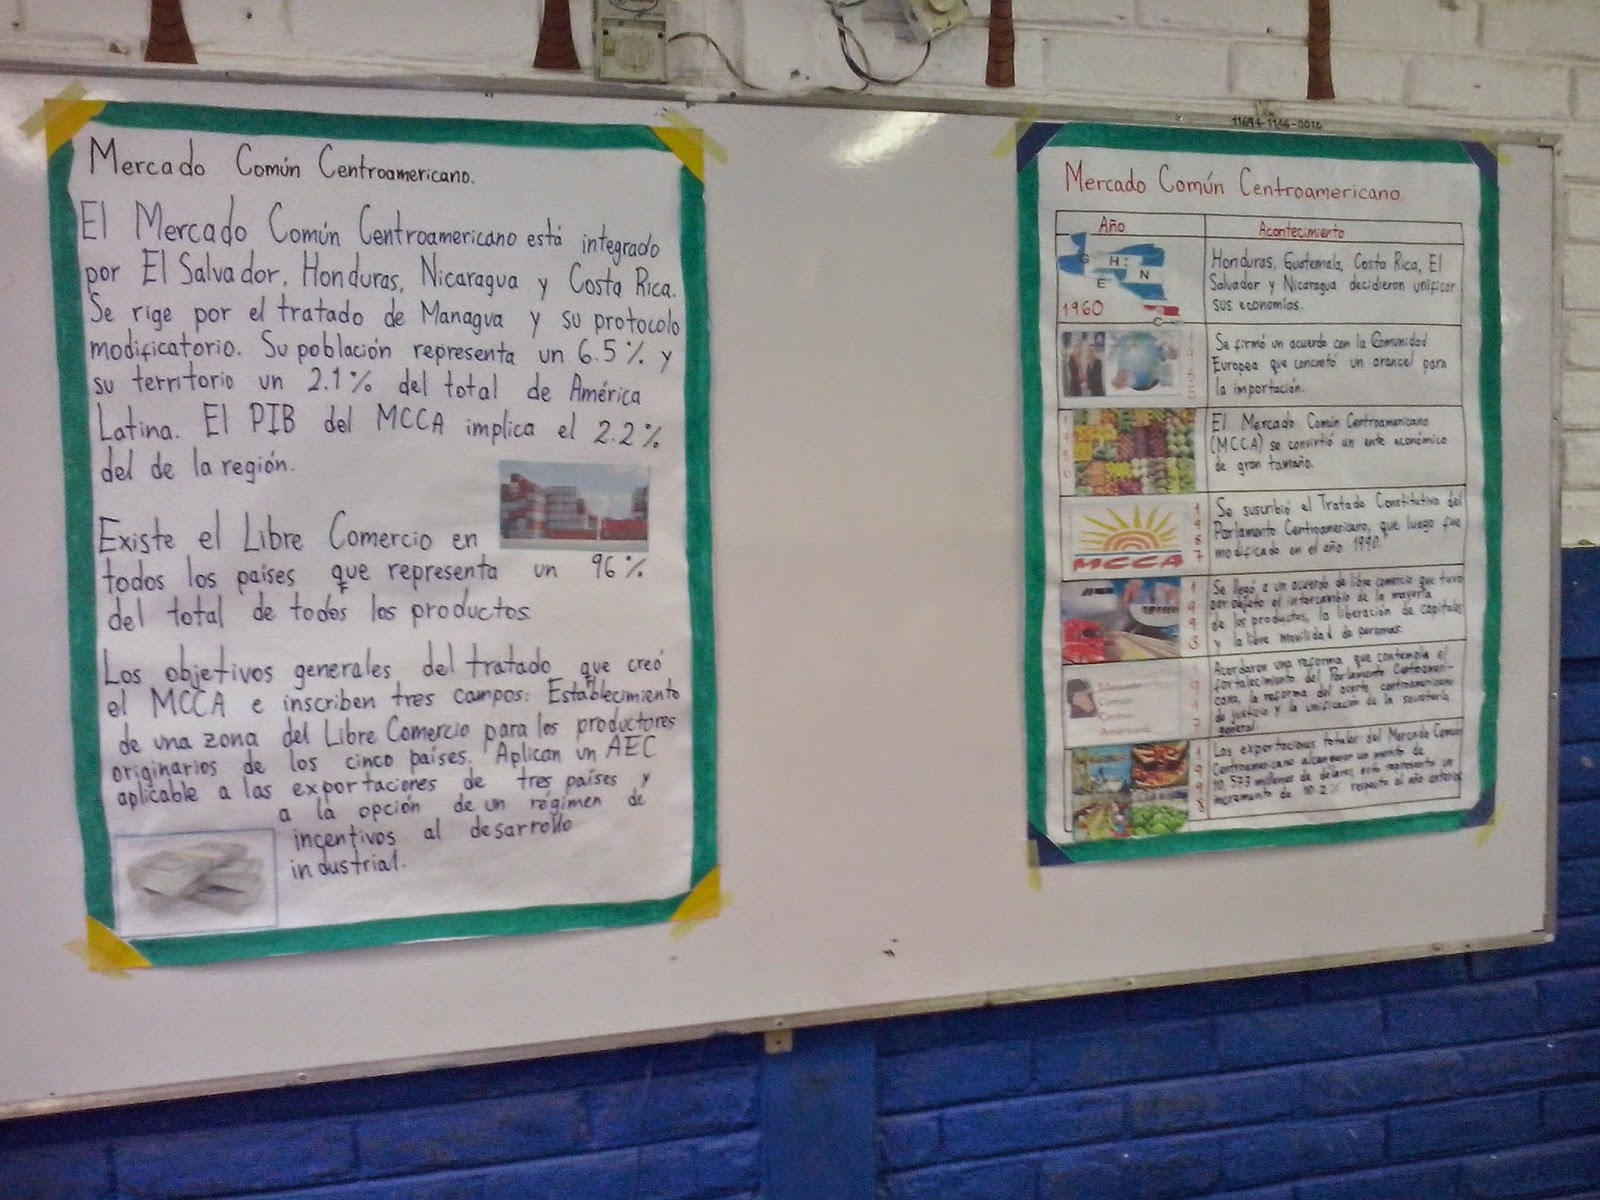 Mercado Común Centroamericano.
El Mercado Común Centroamericano está integrado
por El Salvador, Honduras, Nicaragua y Costa Rica.
Se rige por el tratado de Managua y su protocolo
modificatorio. Su población representa un 6.5% y
su territorio un 2.1% del total de América
Latina. El PIB del MCCA implica el 2.2%
del de la región.
Existe el Libre Comercio en
todos los países que representa un 96%
del total de todos los productos
Los objetivos generales del tratado que creó
el MCCA e inscriben tres campos: Establecimiento
de una zona del Libre Comercio para los productores
originarios de los cinco países. Aplican un AEC
aplicable a las exportaciones de tres países y
a la opción de un régimen de
incentivos al desarrollo
industrial.
11694-1146-0012
Mercado Común Centroamericano.
Año Acontecimiento
G H N
E
C
1960
Honduras, Guatemala, Costa Rica, El
Salvador y Nicaragua decidieron unificar
sus economías.
Se firmó un acuerdo con la Comunidad
Europea que concretó un arancel para
la importación.
El Mercado Común Centroamericano
(MCCA) se convirtió un ente económico
de gran tamaño.
MCCA
1987
Se suscribió el Tratado Constitutivo del
Parlamento Centroamericano, que luego fue
modificado en el año 1990.
1993
Se llegó a un acuerdo de libre comercio que tuvo
por objeto el intercambio de la mayoría
de los productos, la liberación de capitales
y la libre movilidad de personas.
Mercado
Común
Centro
Americano
1997
Acordaron una reforma que contempla el
fortalecimiento del Parlamento Centroameri-
cano, la reforma del corte centroamericano
de justicia y la unificación de la secretaría
general.
1998
Las exportaciones totales del Mercado Común
Centroamericano alcanzaron un monto de
10,573 millones de dólares, esto representa un
incremento de 10.2% respecto al año anterior